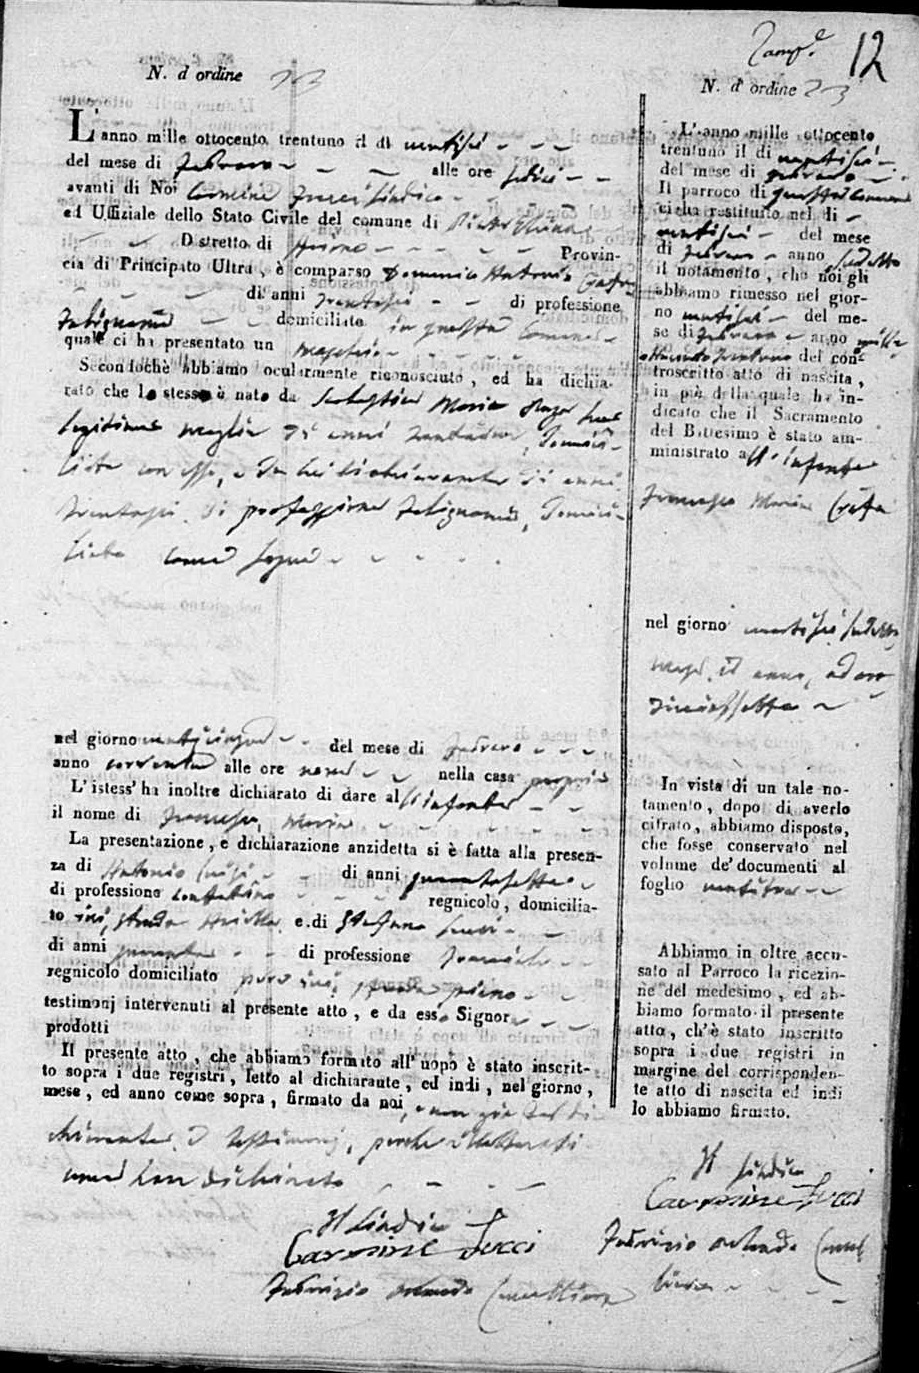 12
N. d'ordine 23
L'anno mille ottocento trentuno il di ventisei
del mese di Febraro alle ore sedici
avanti di Noi Carmine Tucci Sindaco
ed Uffiziale dello Stato Civile del comune di
Distretto di Ariano Provin-
cia di Principato Ultra, è comparso Domenico Antonio
di anni trentasei di professione
Falegname domiciliato in questo Comune
quale ci ha presentato un maschio
Secondochè abbiamo ocularmente riconosciuto, ed ha dichia-
rato che lo stesso è nato da Maria
legittima moglie di anni domici-
liata con esso, e da lui dichiarante di anni
trentasei di professione Falegname, domici-
liato come sopra
nel giorno venticinque del mese di Febraro
anno corrente alle ore nove nella casa propria
L'istess' ha inoltre dichiarato di dare all'infante
il nome di Francesco Maria
La presentazione, e dichiarazione anzidetta si è fatta alla presen-
za di Antonio di anni quarantasette
di professione regnicolo, domicilia-
to ivi, strada e di Stefano
di anni quaranta di professione
regnicolo domiciliato pure ivi, strada piano
testimonj intervenuti al presente atto, e da esso Signor
prodotti
Il presente atto, che abbiamo formato all'uopo è stato inscrit-
to sopra i due registri, letto al dichiarante, ed indi, nel giorno,
mese, ed anno come sopra, firmato da noi, e non già dal di-
chiarante, e testimonj, perché illetterati
come han dichiarato
Il Sindaco
Carmine Tucci
Fabrizio Cancelliere
N. d'ordine 23
L'anno mille ottocento
trentuno il di ventisei
del mese di Febraro
Il parroco di questo Comune
ci ha restituito nel di
ventisei del mese
di Febraro anno sudetto
il notamento, che noi gli
abbiamo rimesso nel gior-
no ventisei del me-
se di Febraro anno mille
ottocento trentuno del con-
troscritto atto di nascita,
in piè della quale ha in-
dicato che il Sacramento
del Battesimo è stato am-
ministrato all'infante
Francesco Maria
nel giorno ventisei sudetto
mese, ed anno, ad ore
diciassette
In vista di un tale no-
tamento, dopo di averlo
cifrato, abbiamo disposto,
che fosse conservato nel
volume de' documenti al
foglio ventitre
Abbiamo in oltre accu-
sato al Parroco la ricezio-
ne del medesimo, ed ab-
biamo formato il presente
atto, ch'è stato inscritto
sopra i due registri in
margine del corrisponden-
te atto di nascita ed indi
lo abbiamo firmato.
Il Sindaco
Carmine Tucci
Fabrizio Cancel
liere